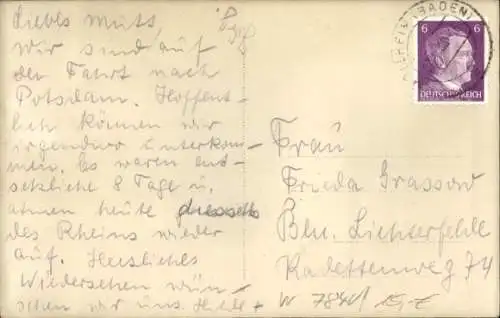 Liebes Muts,
wir sind auf
der Fahrt nach
Potsdam. Hoffent-
lich können wir
irgendwo unterkom-
men. Es waren ent-
setzliche 8 Tage u.
atmen heute diesseits
des Rheins wieder
auf. Herzliches
Wiedersehen wün-
schen wir uns.
(BADEN)
6 6
DEUTSCHES REICH
Frau
Frieda Grassow
Bln. Lichterfelde
Kadettenweg 74
W 7840/ 15,-€